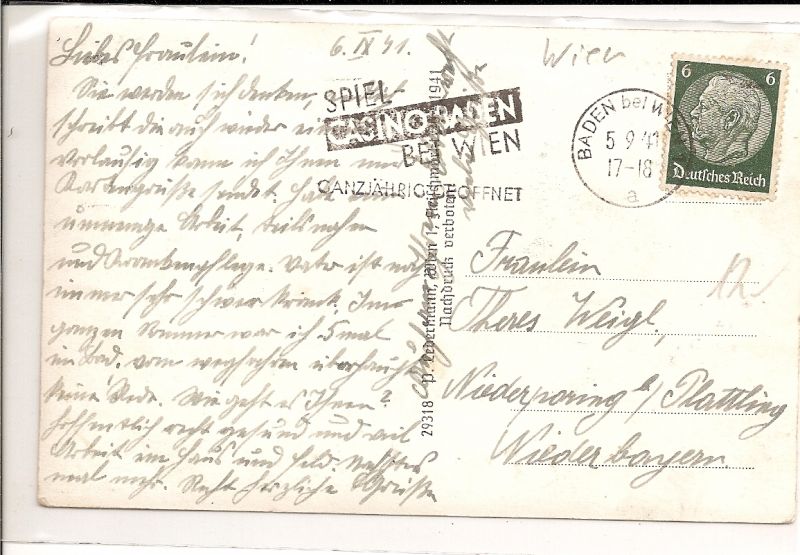 Liebes Fräulein! 6. IX 41.
Sie werden sich denken,
schreibt die auch wieder
Vorläufig kann ich Ihnen nur
Kartengrüße senden. Habe
unmenge Arbeit,
und Krankenpflege. Vater ist noch
immer sehr schwer krank. Im
ganzen Sommer war ich 5 mal
im Bad. vom wegfahren überhaupt
keine Rede. Wie geht es Ihnen?
hoffentlich recht gesund und viel
Arbeit im Haus und Feld. Nächstes
mal mehr. Recht herzliche Grüße
Wien
SPIEL
CASINO BADEN
BEI WIEN
GANZJÄHRIG GEÖFFNET
BADEN bei WIEN
5 9 41
17-18
a
6 6
Deutsches Reich
Fräulein
Theres Weigl,
Niederpöring b/ Plattling
Niederbayern.
29318 P. Ledermann, Wien 1, 1941
Nachdruck verboten